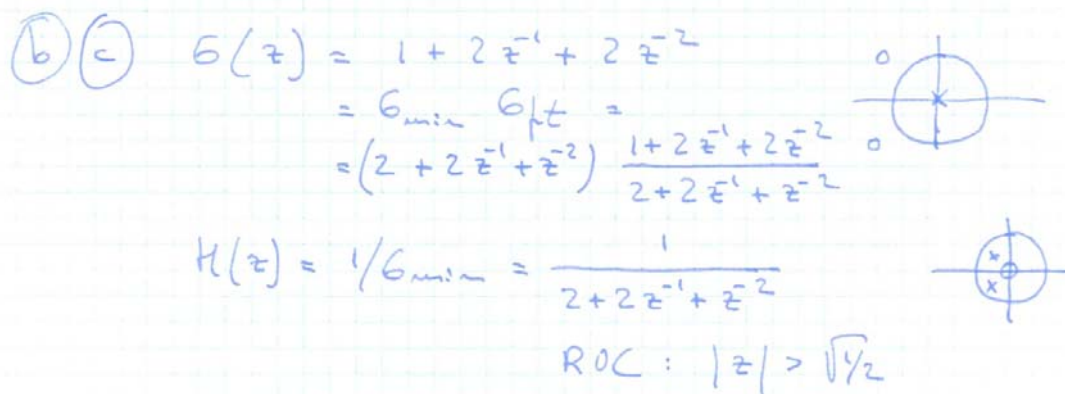 b c G(z) = 1 + 2 z^-1 + 2 z^-2
= G_min G_pt =
= (2 + 2 z^-1 + z^-2) (1 + 2 z^-1 + 2 z^-2) / (2 + 2 z^-1 + z^-2)
H(z) = 1/G_min = 1 / (2 + 2 z^-1 + z^-2)
ROC : |z| > √1/2